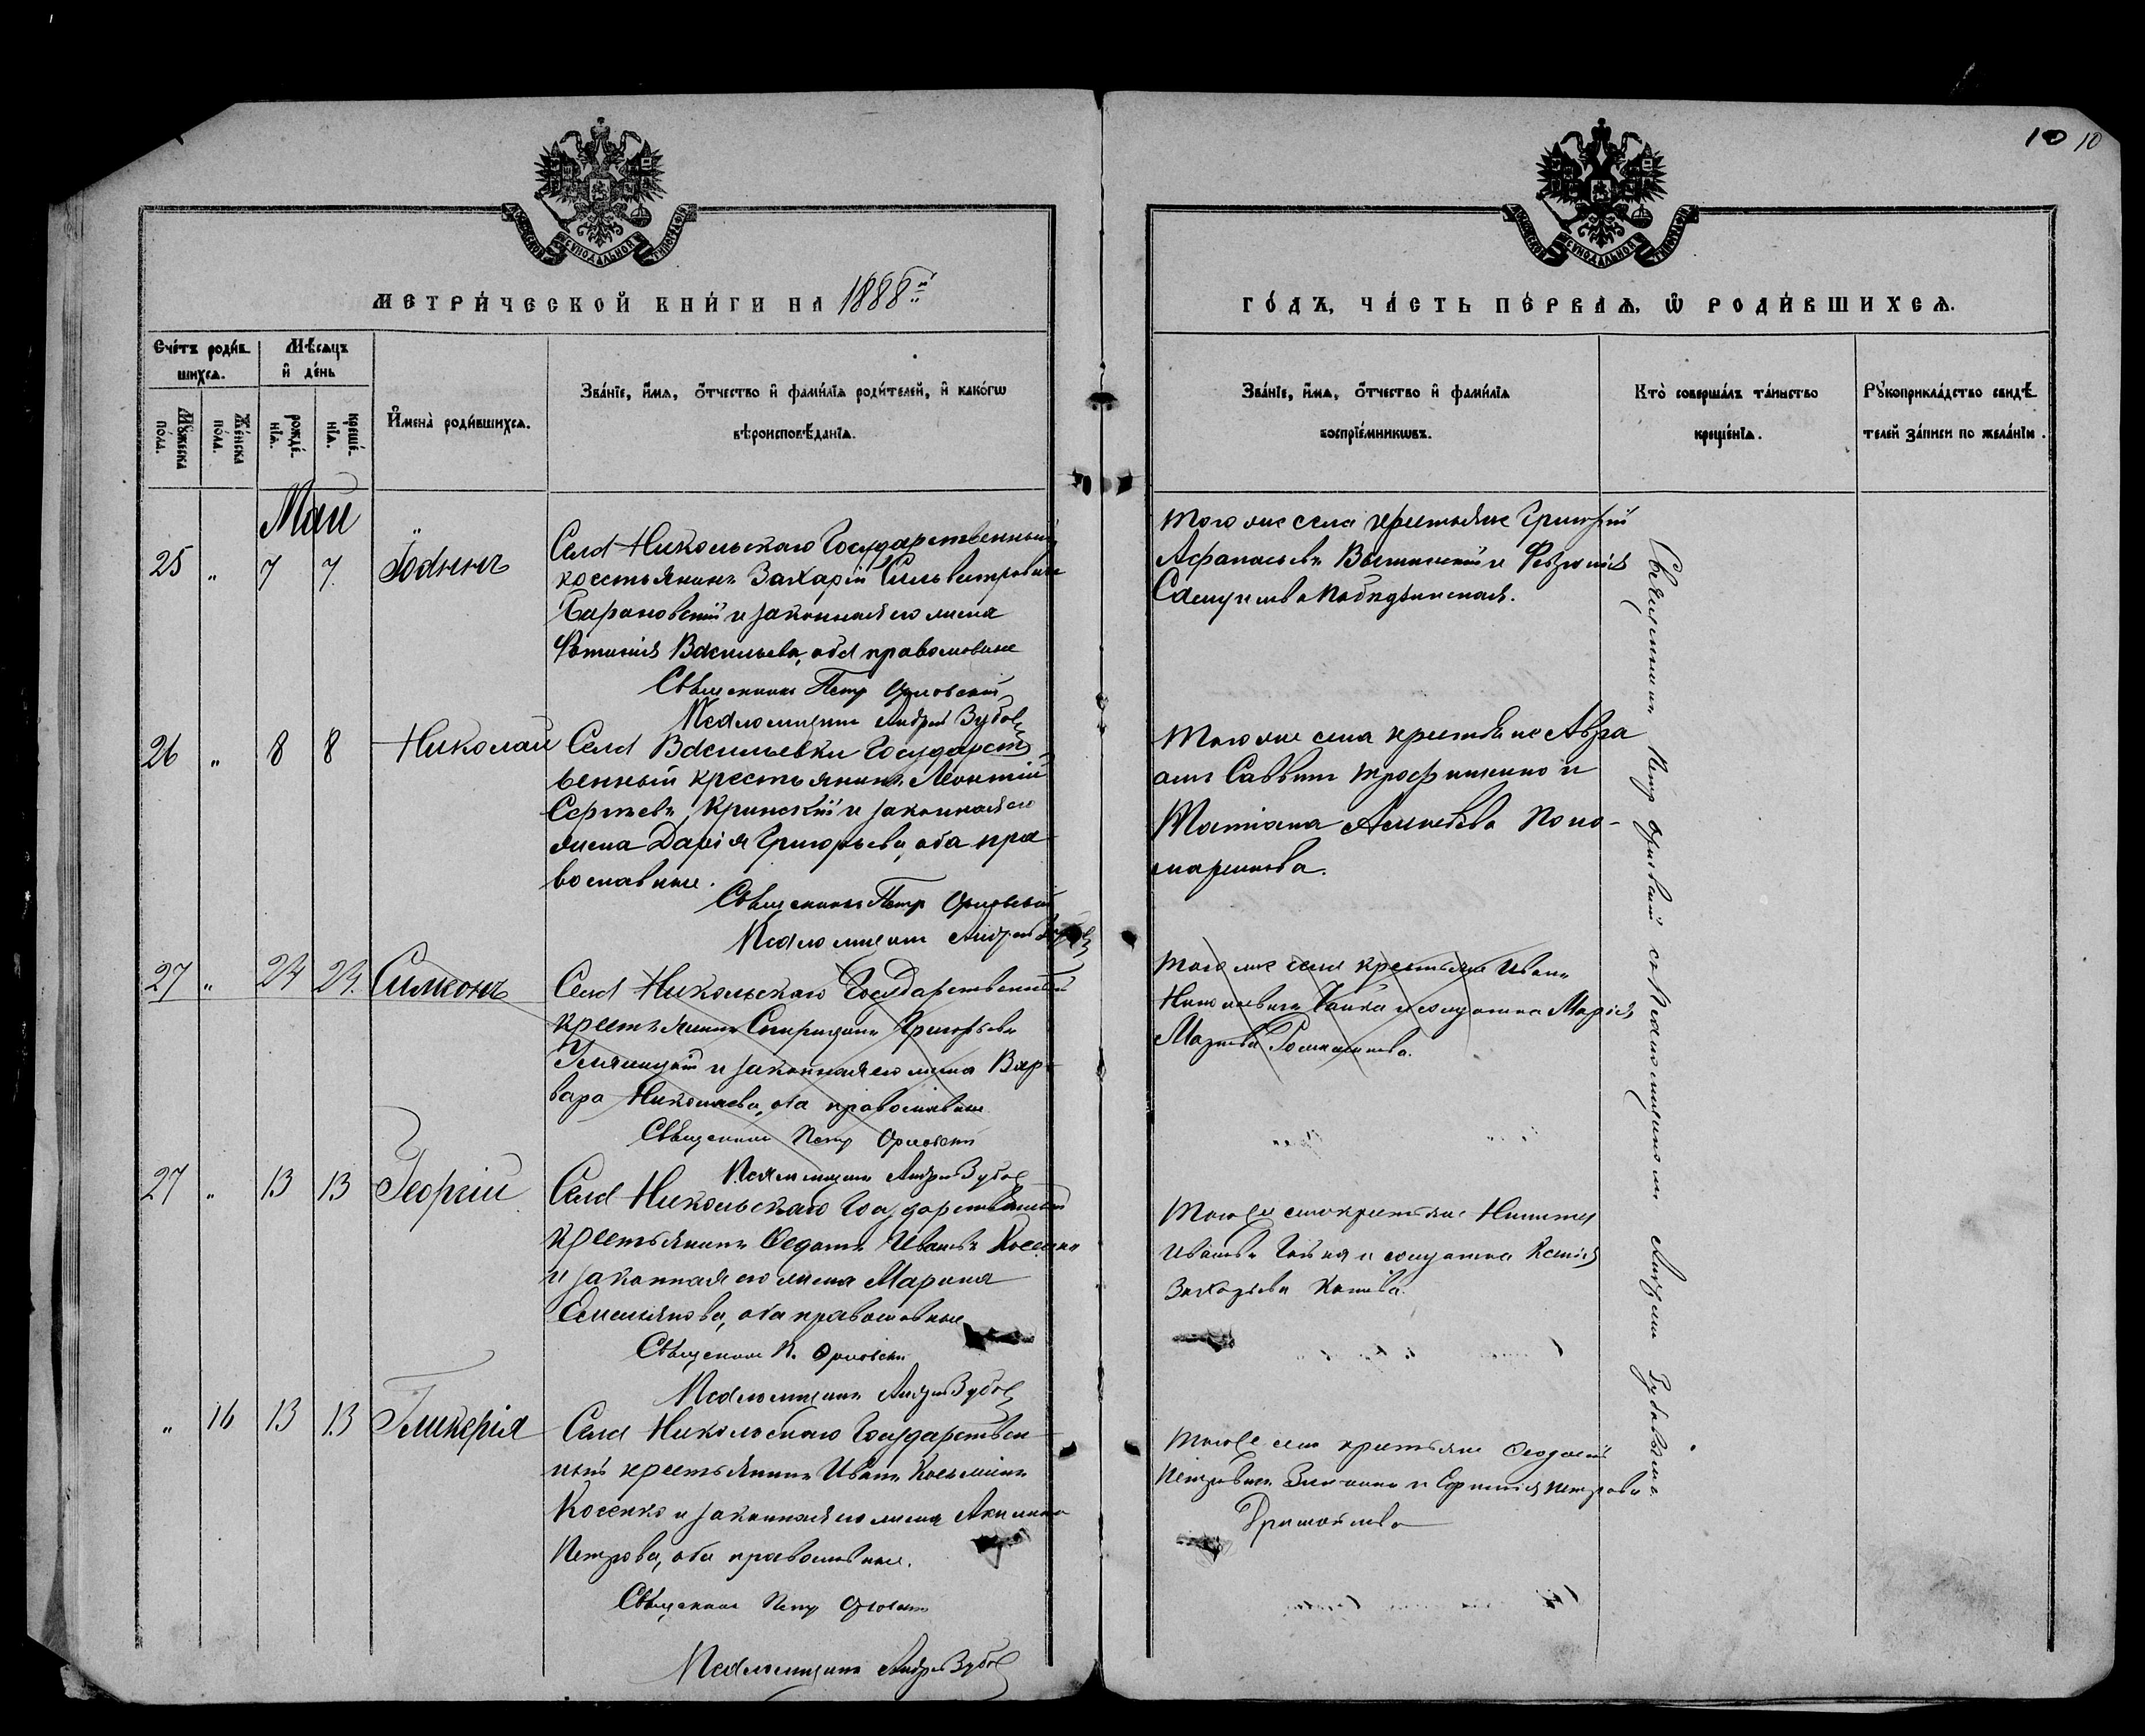 10 10
МЕТРИ́ЧЕСКОЙ КНИ́ГИ НА 1888й
ГО́ДЪ, ЧА́СТЬ ПЕ́РВАѦ, Ѡ҆ РОДИ́ВШИХСѦ.
Сче́тъ роди́в-
шихсѧ.
Мѣ́сѧцъ
и҆ де́нь
Мꙋ́жеска
по́ла.
Же́нска
по́ла.
рожде́-
нїѧ.
креще́-
нїѧ.
И҆мена̀ роди́вшихсѧ.
Зва́нїе, и҆́мѧ, ѻ҆́тчество и҆ фами́лїѧ роди́телей, и҆ како́гѡ
вѣроисповѣ́данїѧ.
Зва́нїе, и҆́мѧ, ѻ҆́тчество и҆ фами́лїѧ
воспрїе́мникѡвъ.
Кто̀ соверша́лъ та́инство
креще́нїѧ.
Рꙋкоприкла́дство свидѣ́-
телей за́писи по жела́нїю.
Май
25 " 7 7. Іоаннъ
Села Никольскаго Государственный
крестьянинъ Захарій Сильвестровичъ
Барановскій и законная его жена
Фотинія Васильева, оба православные
Священникъ Петр Орловскій
Псаломщикъ Андрей Зубовъ
Того же села крестьяне Григорій
Афанасьевъ и
26 " 8 8 Николай
Села Васильевки Государст-
венный крестьянинъ Леонтій
Сергѣевъ Кринскій и законная его
жена Дарія Григорьева, оба пра-
вославные.
Священникъ Петр Орловскій
Псаломщикъ Андрей Зубовъ
Того же села крестьяне Авра
амъ Саввинъ Трофименко и
Татіана Поно-
маренкова.
27 " 24 24. Симеонъ
Села Никольскаго Государственный
крестьянинъ Спиридонъ Григорьевъ
и законная его жена Вар-
вара Николаева, оба православные
Священникъ Петр Орловскій
Псаломщикъ Андрей Зубовъ
Того же села крестьяне Иванъ
Николаевичъ и солдатка Марія
27 " 13 13 Георгій
Села Никольскаго Государственный
крестьянинъ Ѳедотъ Ивановъ Косенко
и законная его жена Марина
Емельянова, оба православные
Священник П. Орловскій
Псаломщикъ Андрей Зубовъ
Того же села крестьяне Никита
Ивановъ и солдатка Ксенія
Захарьева
" 16 13 13 Гликерія
Села Никольскаго Государствен-
ный крестьянинъ Иванъ Косьминъ
Косенко и законная его жена Акилина
Петрова, оба православные.
Священник Петр Орловскій
Псаломщикъ Андрей Зубовъ
Того же села крестьяне
Петровичъ и Петрова
Священникъ Петр Орловскій съ Псаломщикомъ Андреемъ Зубовымъ.